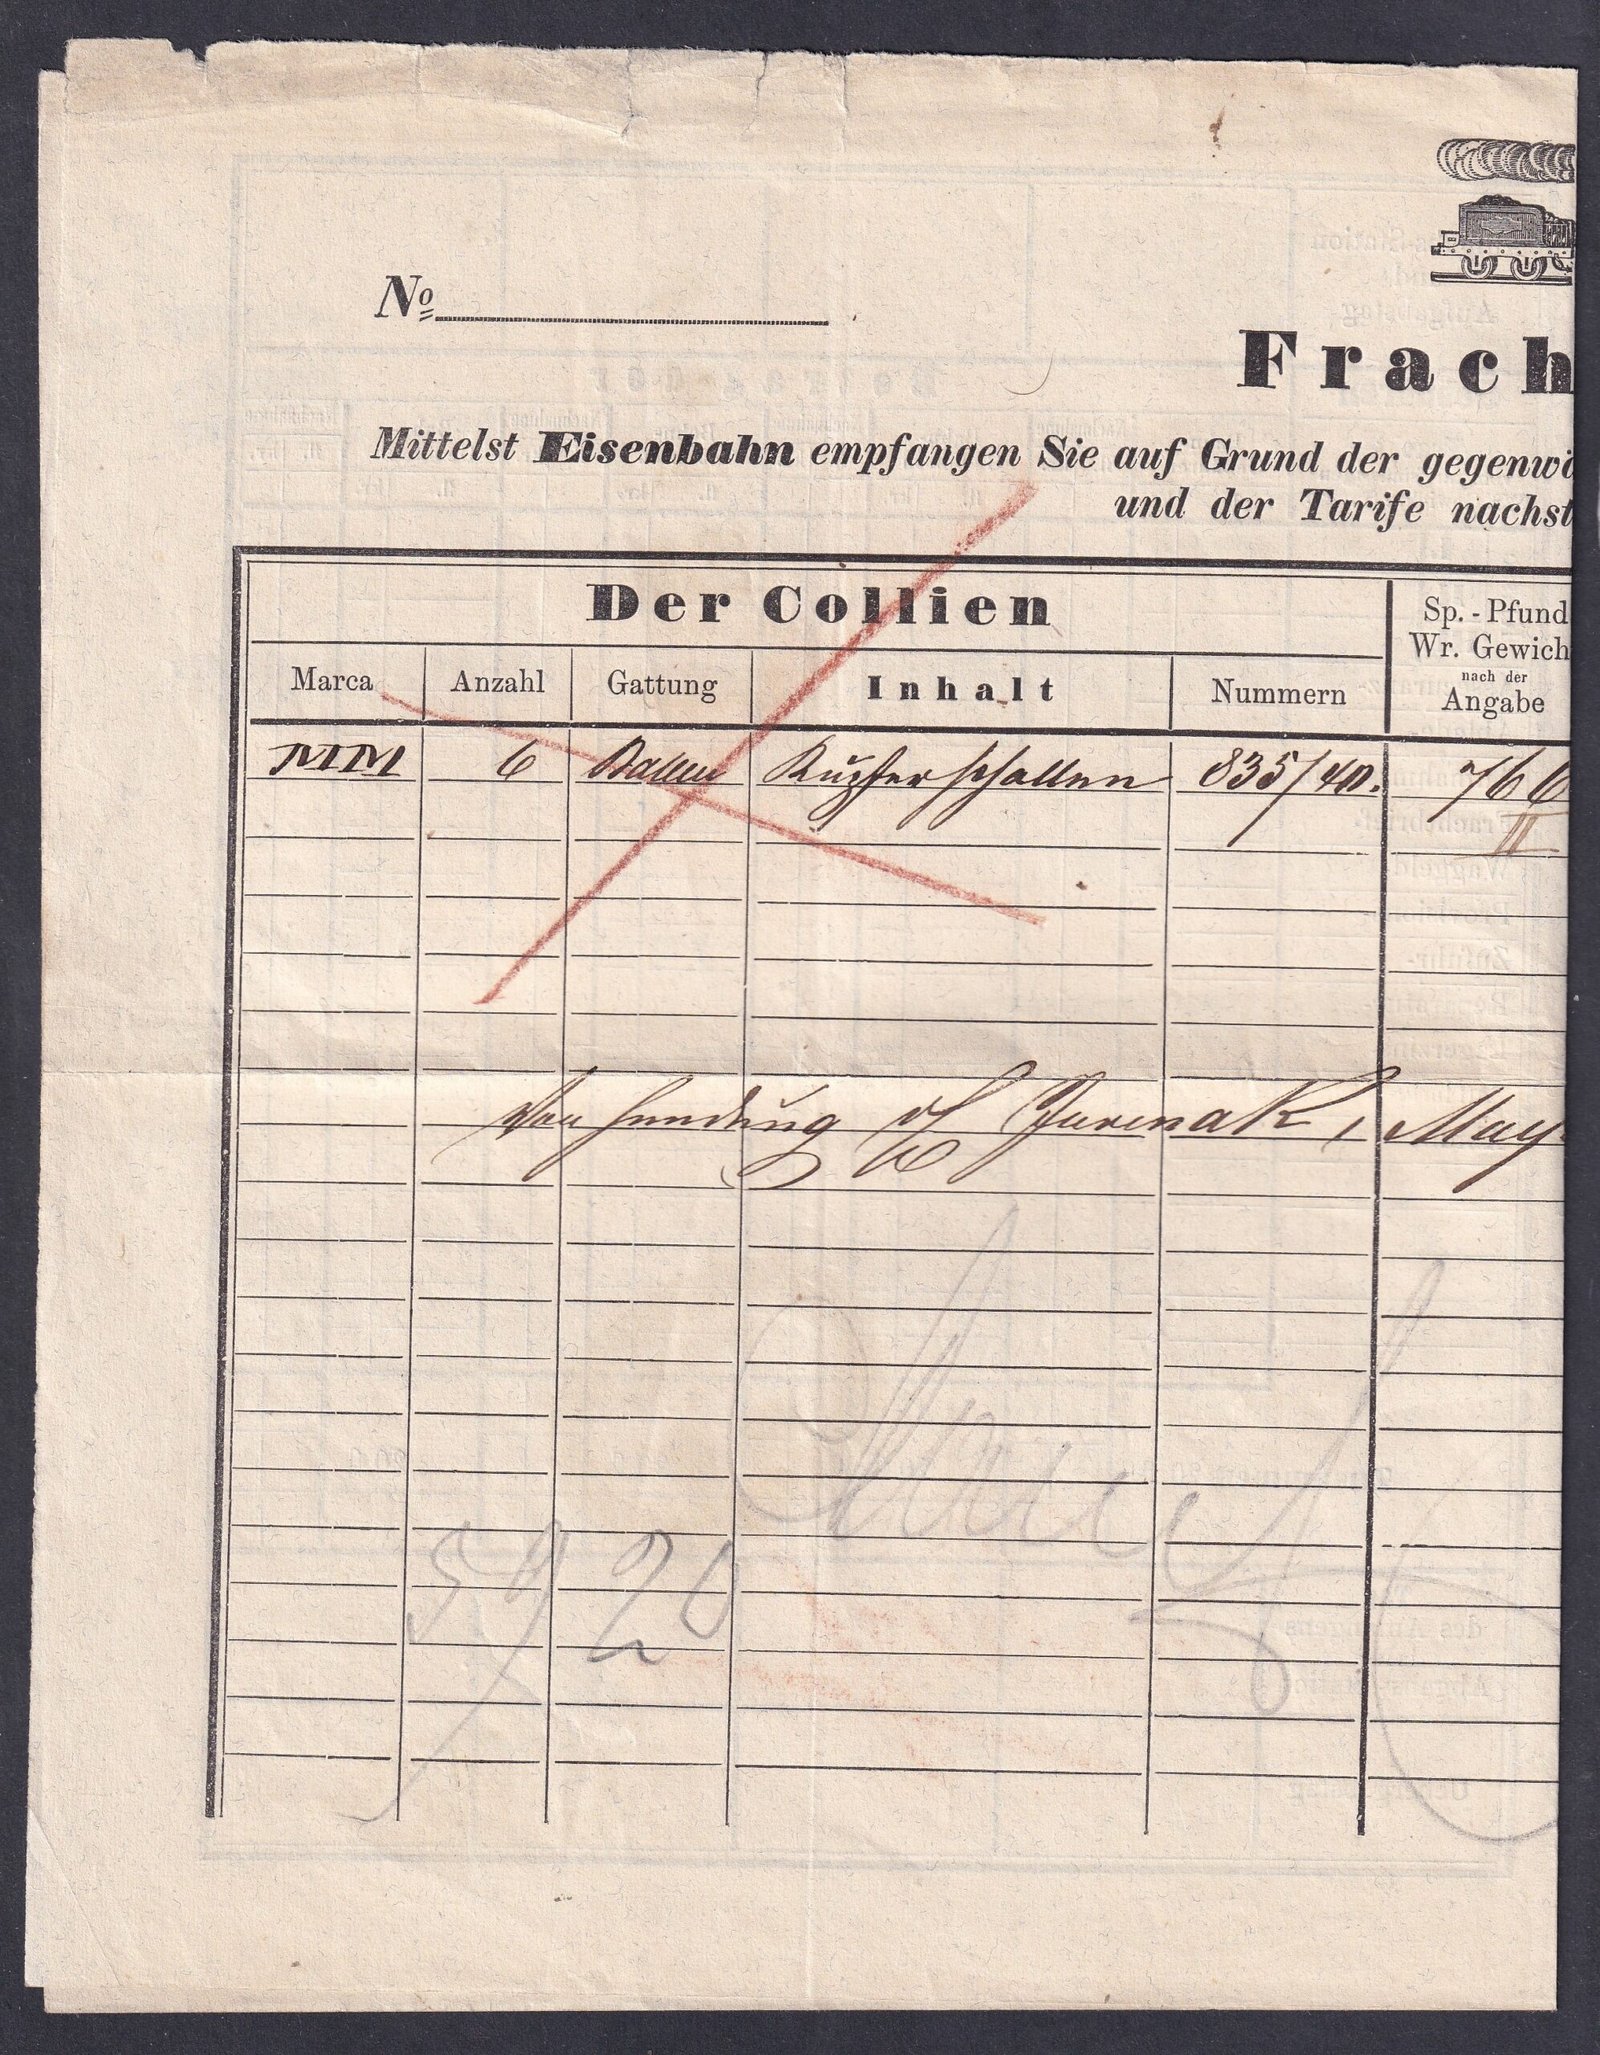 No
Frach
Mittelst Eisenbahn empfangen Sie auf Grund der gegenwä
und der Tarife nachst
Der Collien
Sp. - Pfund
Wr. Gewich
nach der
Angabe
Marca Anzahl Gattung Inhalt Nummern
MM 6 Ballen 835/40. 766
May
5920